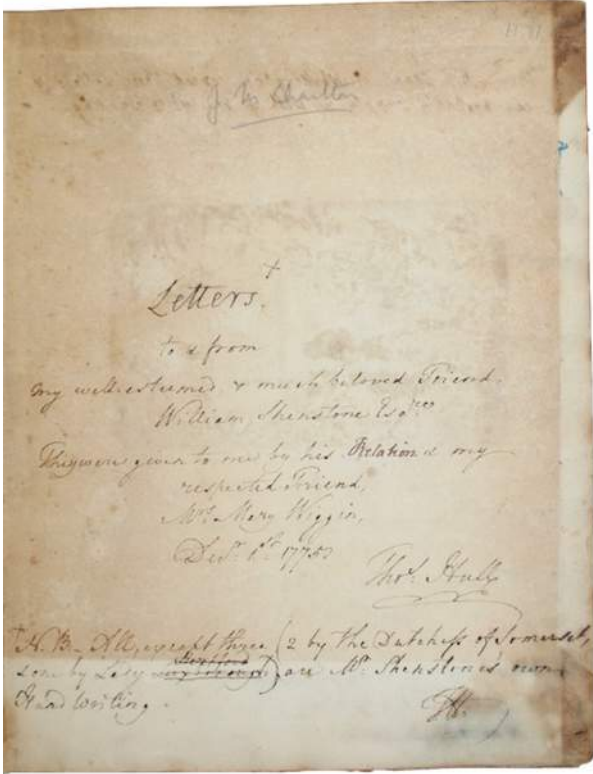 Letters.+
to & from
my well-esteemed & much beloved Friend.
William Shenstone Esqre
They were given to me by his Relation & my
respected Friend,
Mrs. Mary Wiggin,
Decr. 1st. 1775
Thos. Hull
+N.B. All, except three (2 by the Dutchess of Somerset,
& one by Lady) are Mr. Shenstone's own
Hand Writing.
TH.